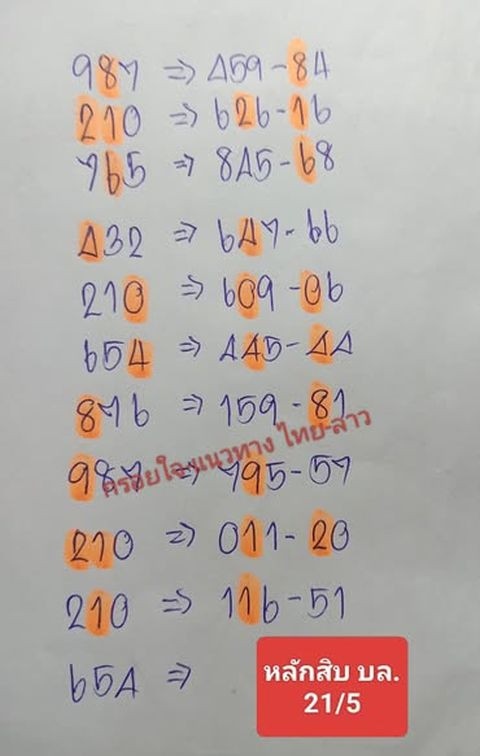 987 => 459-84
210 => 626-16
765 => 845-68
432 => 647-66
210 => 609-06
654 => 445-44
876 => 159-81
แนวทาง ไทย-ลาว
987 => 795-57
210 => 011-20
210 => 116-51
654 =>
หลักสิบ บล.
21/5